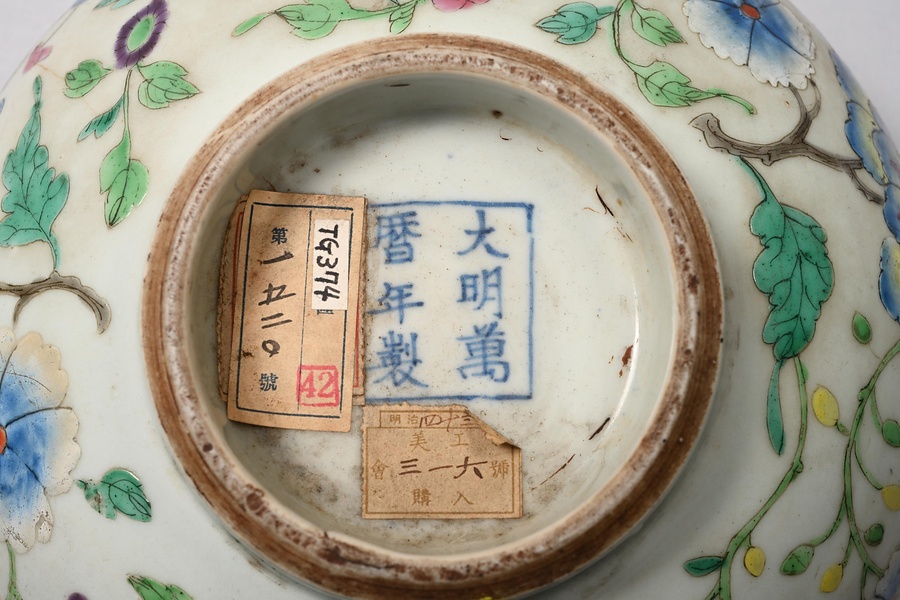 大明萬
暦年製
第一五二〇號
TG374
42
明治四十三
美工
會三一六號
購入